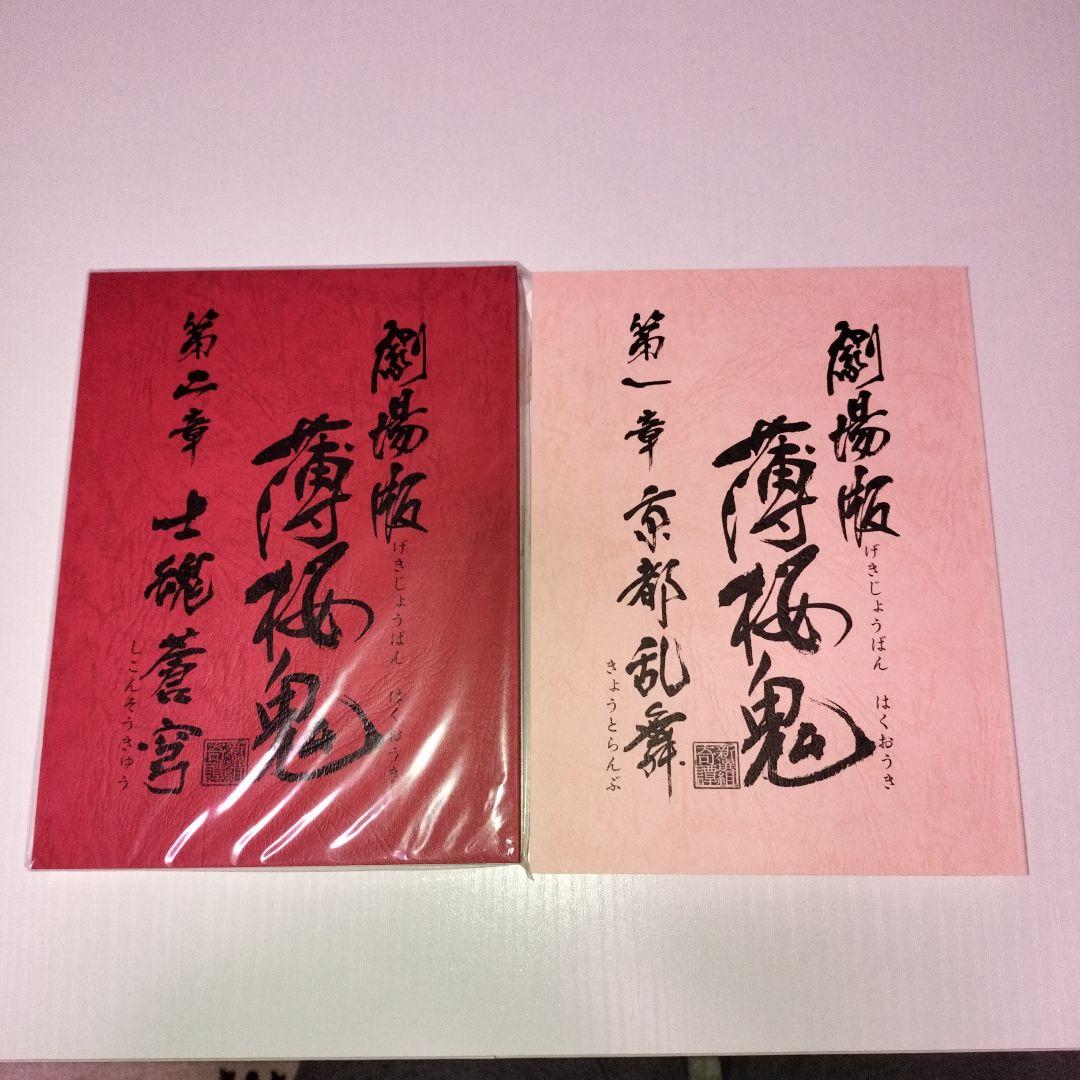 劇場版
げきじょうばん はくおうき
薄桜鬼
新選組
奇譚
第二章 士魂蒼穹
しこんそうきゅう
劇場版
げきじょうばん はくおうき
薄桜鬼
新選組
奇譚
第一章 京都乱舞
きょうとらんぶ